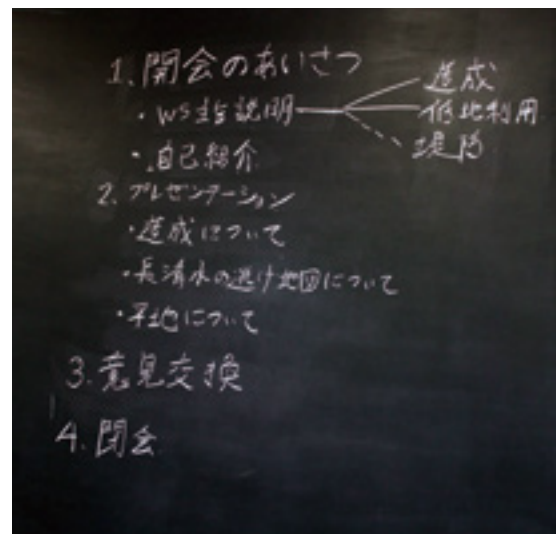 1. 開会のあいさつ
・WS主旨説明 造成
低地利用
堤防
・自己紹介
2. プレゼンテーション
・造成について
・長清水の逃げ地図について
・平地について
3. 意見交換
4. 閉会